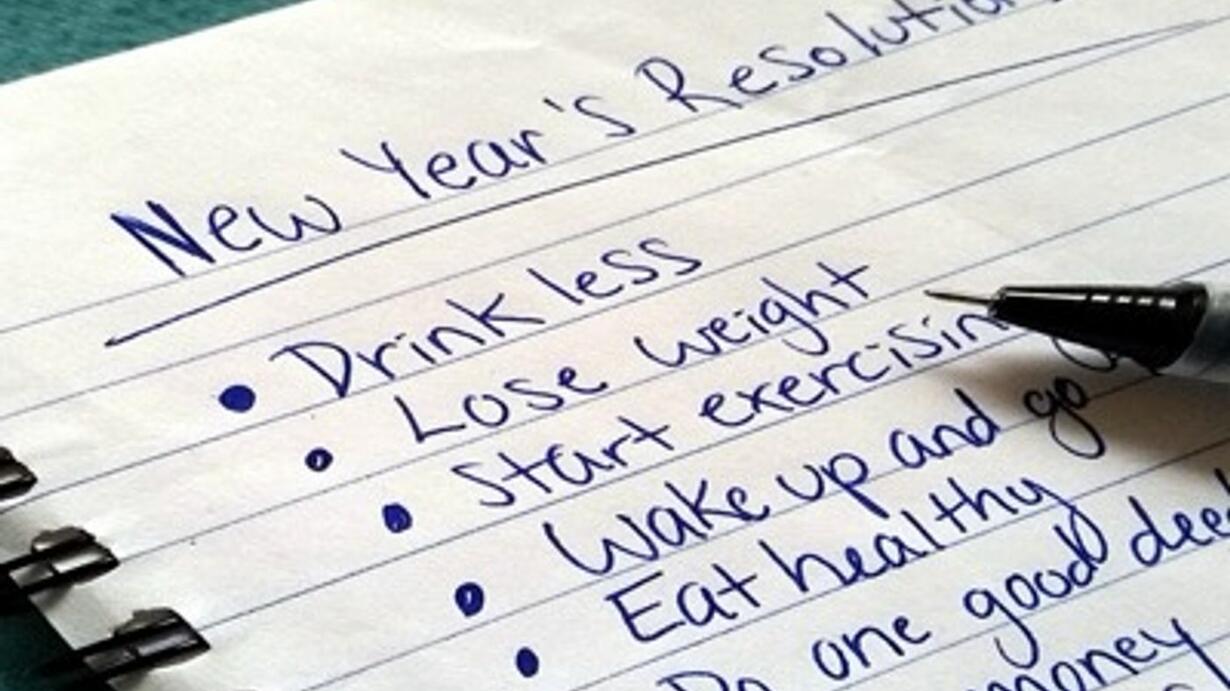 New Year's Resolution
• Drink less
• Lose weight
• Start exercising
• Wake up and go
• Eat healthy
Do one good deed
money